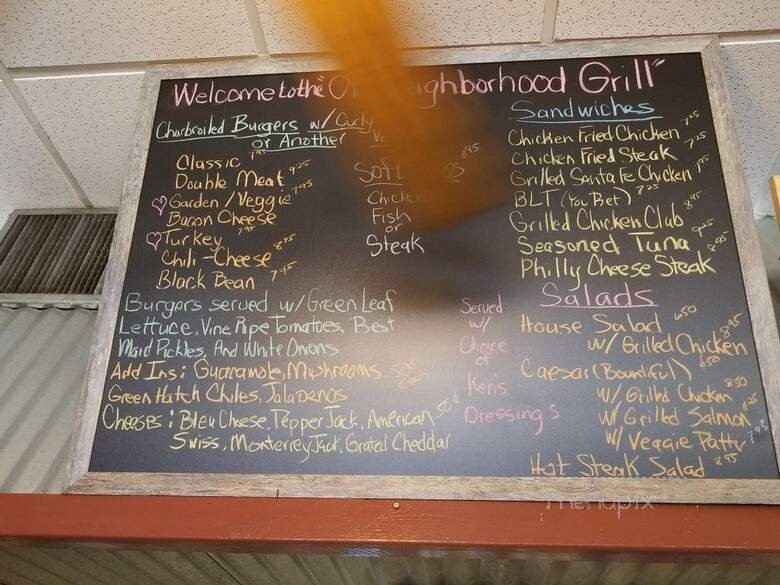 Welcome to the "O ghborhood Grill"
Charbroiled Burgers w/ Curly
or Another
Classic 7.95
Double Meat 9.25
Garden / Veggie 7.95
Bacon Cheese
Turkey 7.95
Chili-Cheese 8.75
Black Bean 7.45
Burgers served w/ Green Leaf
Lettuce, Vine Ripe Tomatoes, Best
Maid Pickles, And White Onions
Add Ins: Guacamole, Mushrooms
Green Hatch Chiles, Jalapenos
Cheeses: Bleu Cheese, Pepper Jack, American
Swiss, Monterrey Jack, Grated Cheddar
Soft
Chicken
Fish
or
Steak
Served
w/
Choice
of
Ken's
Dressings
Sandwiches
Chicken Fried Chicken 7.25
Chicken Fried Steak 7.25
Grilled Santa Fe Chicken
BLT (You Bet) 7.25
Grilled Chicken Club 8.95
Seasoned Tuna
Philly Cheese Steak 8.95
Salads
House Salad 6.50
w/ Grilled Chicken 8.95
Caesar (Bountiful) 6.50
w/ Grilled Chicken 8.50
w/ Grilled Salmon
w/ Veggie Patty 7.95
Hot Steak Salad 8.95
menupix